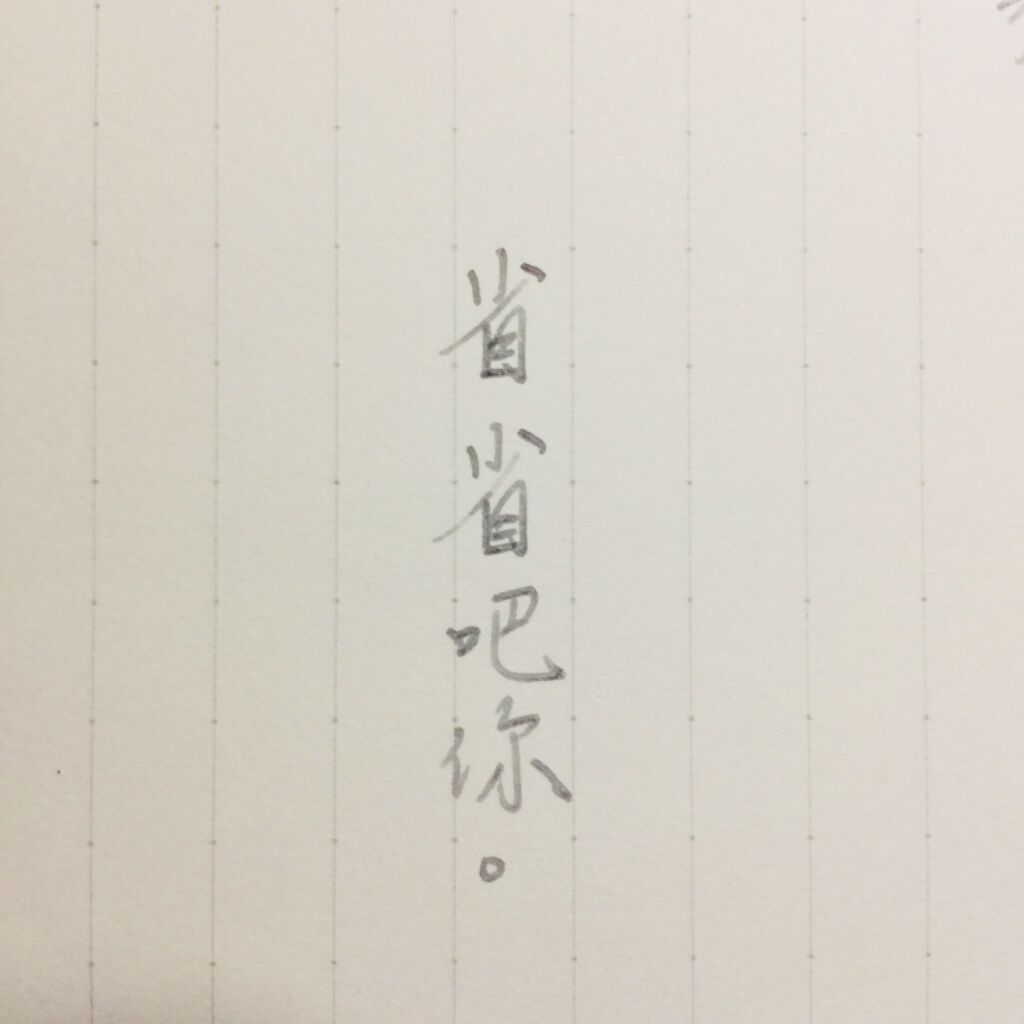 省省吧你。